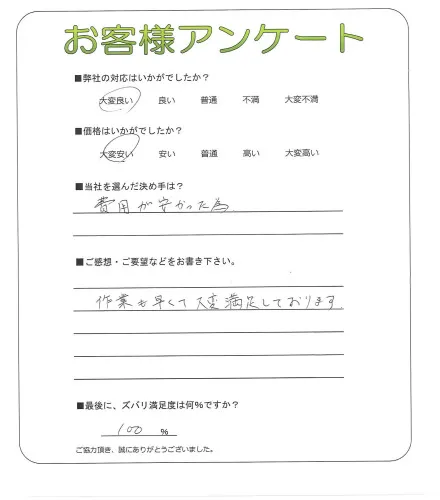 お客様アンケート
■弊社の対応はいかがでしたか？
大変良い 良い 普通 不満 大変不満
■価格はいかがでしたか？
大変安い 安い 普通 高い 大変高い
■当社を選んだ決め手は？
費用が安かった為
■ご感想・ご要望などをお書き下さい。
作業も早くて大変満足しております
■最後に、ズバリ満足度は何%ですか？
100 %
ご協力頂き、誠にありがとうございました。